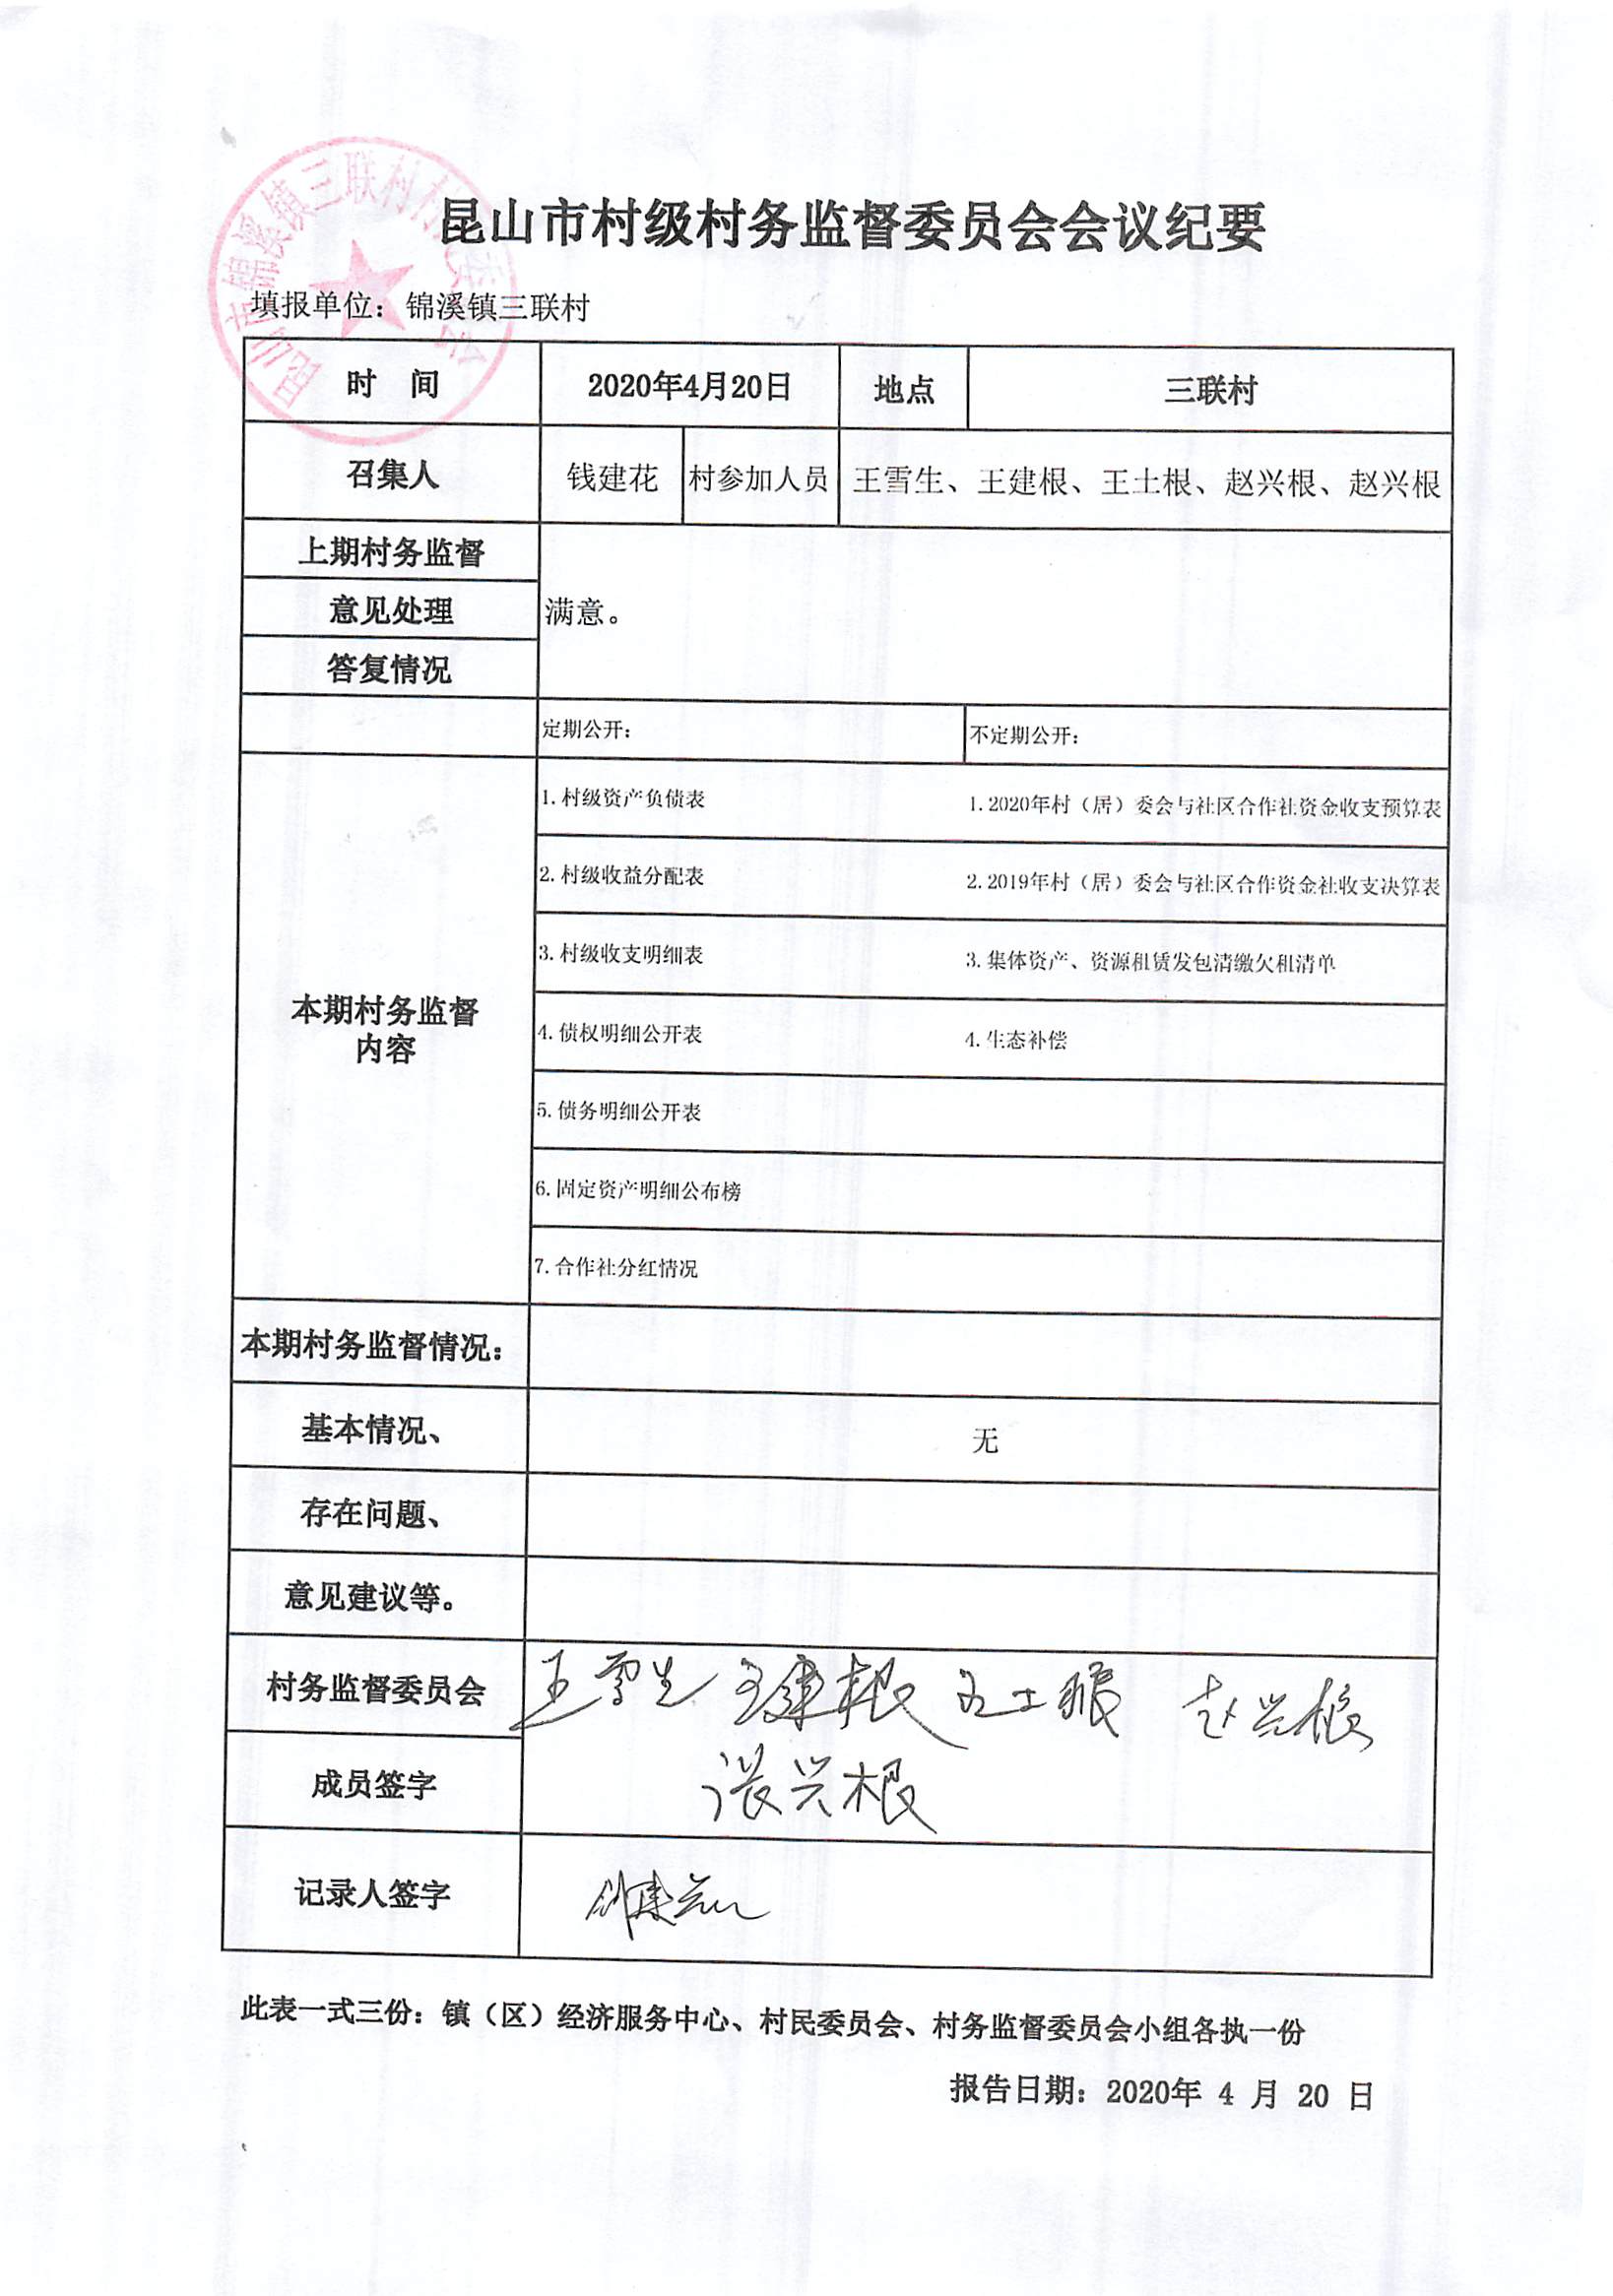 昆山市村级村务监督委员会会议纪要
填报单位：锦溪镇三联村
时 间 2020年4月20日 地点 三联村
召集人 钱建花 村参加人员 王雪生、王建根、王土根、赵兴根、赵兴根
上期村务监督
意见处理 满意。
答复情况
定期公开： 不定期公开：
1.村级资产负债表 1.2020年村（居）委会与社区合作社资金收支预算表
2.村级收益分配表 2.2019年村（居）委会与社区合作资金社收支决算表
3.村级收支明细表 3.集体资产、资源租赁发包清缴欠租清单
本期村务监督
内容
4.债权明细公开表 4.生态补偿
5.债务明细公开表
6.固定资产明细公布榜
7.合作社分红情况
本期村务监督情况：
基本情况、 无
存在问题、
意见建议等。
村务监督委员会 王雪生 王建根 王土根 赵兴根
成员签字 张兴根
记录人签字
此表一式三份：镇（区）经济服务中心、村民委员会、村务监督委员会小组各执一份
报告日期：2020年 4 月 20 日